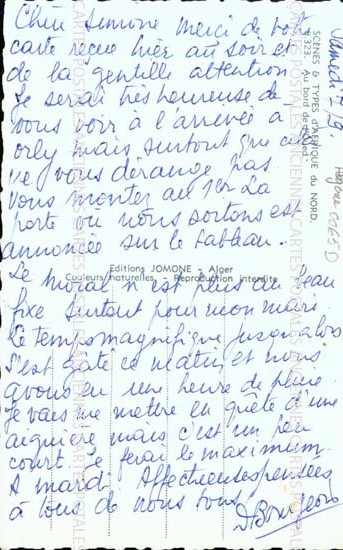 Chère Simone merci de votre
carte reçue hier au soir et
de la gentille attention
Je serai très heureuse de
vous voir à l'arrivée à
orly mais surtout que cela
ne vous dérange pas
Vous montez au 1er La
porte où nous sortons est
annoncée sur le tableau.
Le moral n'est plus au beau
fixe surtout pour mon mari
Le temps magnifique jusqu'alors
s'est gâté ce matin et nous
avons eu une heure de pluie
Je vais me mettre en quête d'une
aiguière mais c'est un peu
court. Je ferai le maximum.
A mardi. Affectueuses pensées
à tous de nous tous
Samedi
SCENES & TYPES d'AFRIQUE du NORD.
Au bord de l'Oued.
Editions JOMONE - Alger
Couleurs naturelles - Reproduction interdite
CARTES POSTALES ANCIENNES